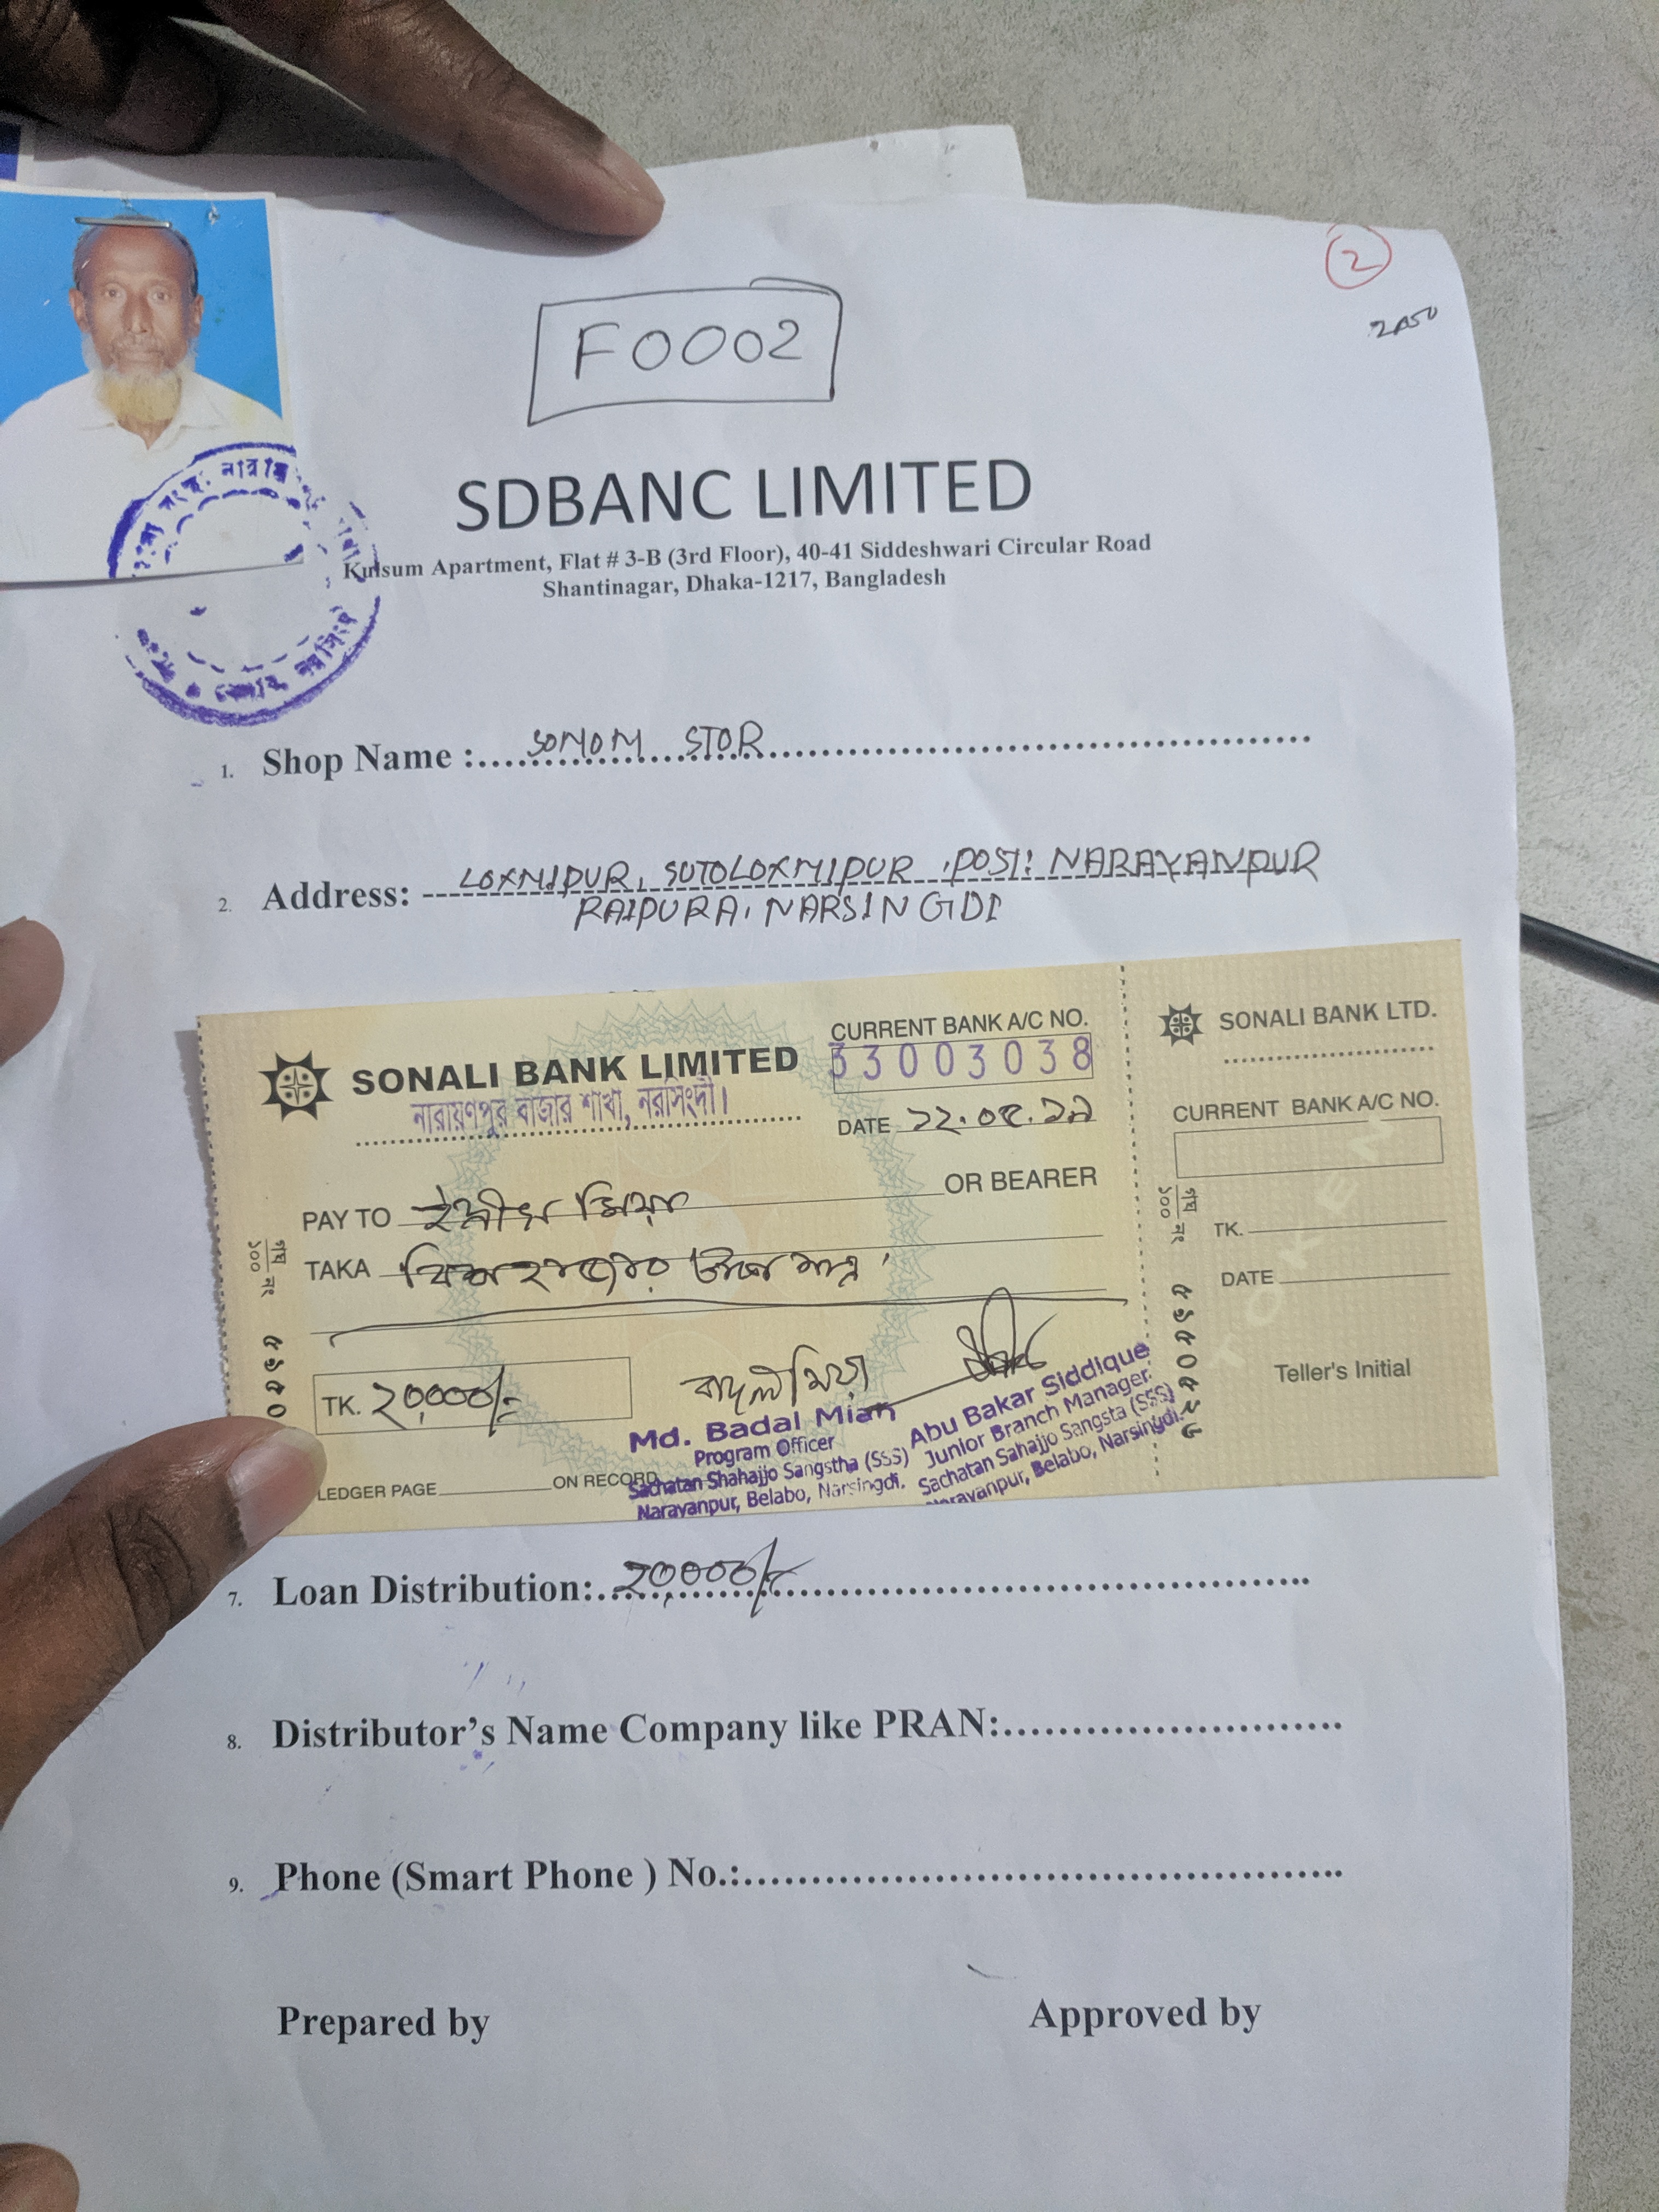 2
F0002
SDBANC LIMITED
Kulsum Apartment, Flat # 3-B (3rd Floor), 40-41 Siddeshwari Circular Road
Shantinagar, Dhaka-1217, Bangladesh
1. Shop Name : SOMOM STOR
2. Address: LOXMIPUR, SUTOLOXMIPUR, POST: NARAYANPUR
RAIPURA, NARSINGDI
SONALI BANK LIMITED
নারায়ণপুর বাজার শাখা, নরসিংদী।
CURRENT BANK A/C NO.
33003038
DATE
PAY TO ইদ্রীস মিয়া OR BEARER
TAKA বিশ হাজার টাকা মাত্র
TK. ২০,০০০/=
বাদল মিয়া
Md. Badal Mian
Program Officer
Sachatan Shahajjo Sangstha (SSS)
Narayanpur, Belabo, Narsingdi.
Abu Bakar Siddique
Junior Branch Manager.
Sachatan Sahajjo Sangsta (SSS)
Narayanpur, Belabo, Narsingdi.
LEDGER PAGE ON RECORD
SONALI BANK LTD.
CURRENT BANK A/C NO.
TK.
DATE
TOKEN
Teller's Initial
7. Loan Distribution: 20,000/=
8. Distributor's Name Company like PRAN:
9. Phone (Smart Phone ) No.:
Prepared by
Approved by